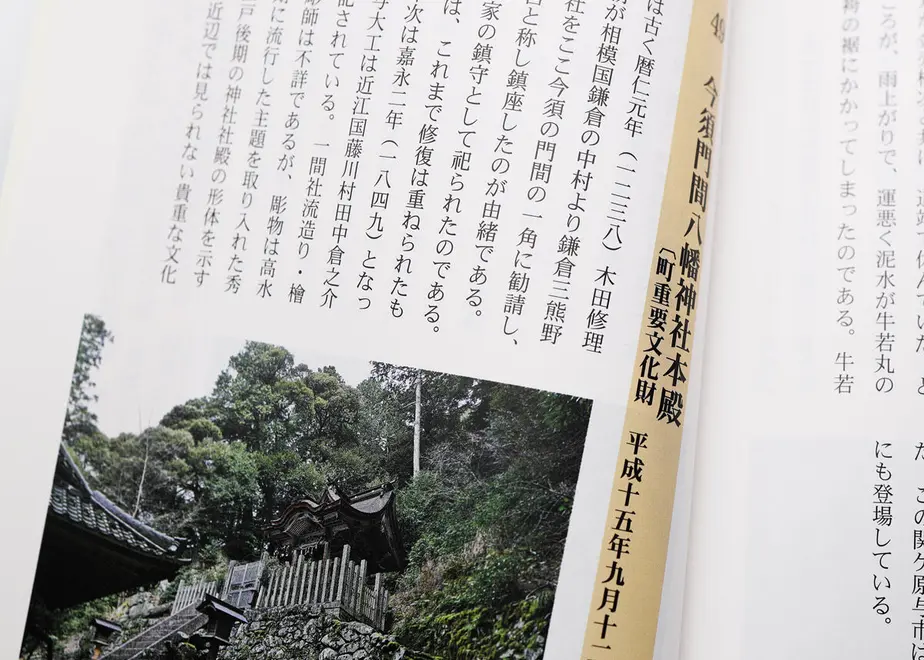 ころが、雨上がりで、運悪く泥水が牛若丸の
の裾にかかってしまったのである。牛若
この関ケ原与市は
にも登場している。
49 今須門間八幡神社本殿
〔町重要文化財 平成十五年九月十一
は古く暦仁元年（一二三八）木田修理
が相模国鎌倉の中村より鎌倉三熊野
社をここ今須の門間の一角に勧請し、
と称し鎮座したのが由緒である。
家の鎮守として祀られたのである。
は、これまで修復は重ねられたも
次は嘉永二年（一八四九）となっ
大工は近江国藤川村田中倉之介
記されている。一間社流造り・檜
彫師は不詳であるが、彫物は高水
に流行した主題を取り入れた秀
戸後期の神社社殿の形体を示す
近辺では見られない貴重な文化